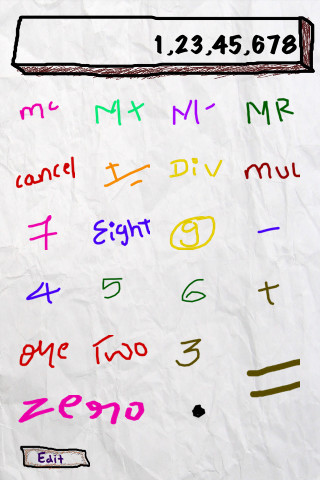 1,23,45,678
mc M+ M- MR
cancel +/- Div MUL
7 Eight 9 -
4 5 6 +
one Two 3 =
zero .
Edit